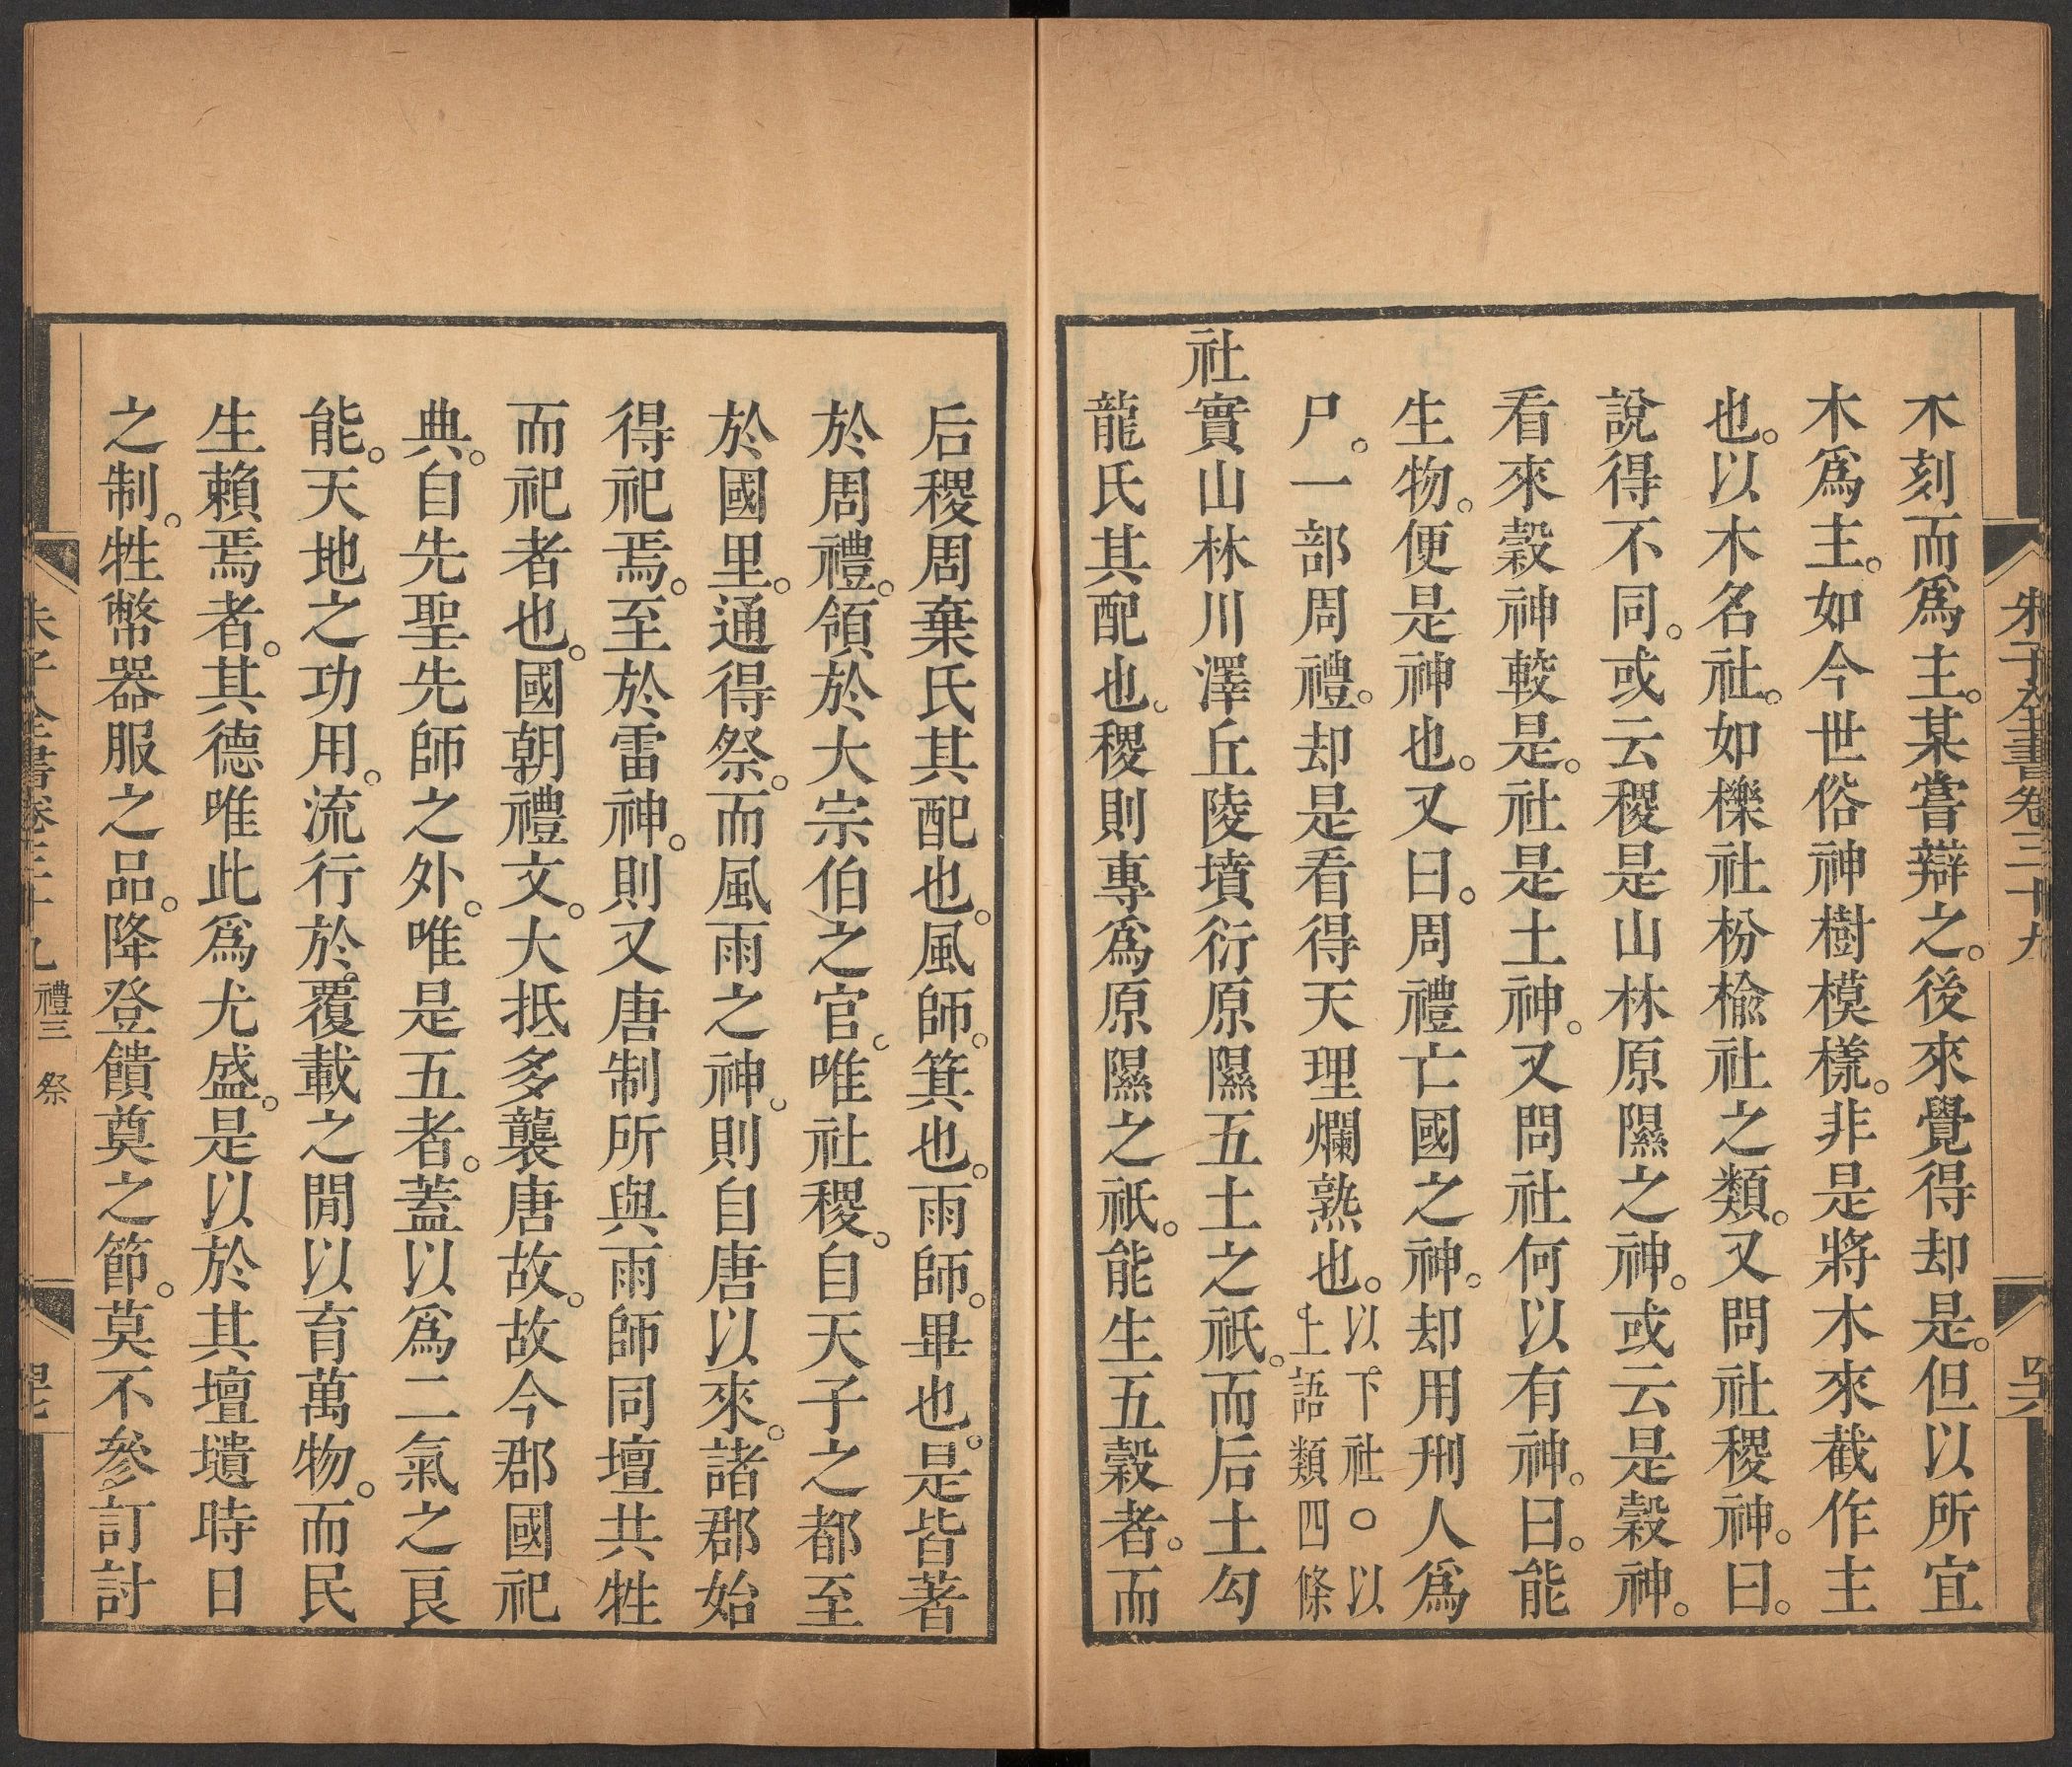 朱子全書卷三十九
吴
不刻而爲主。某嘗辯之。後來覺得却是。但以所宜
木爲主。如今世俗神樹模㨾。非是將木來截作主
也。以木名社。如櫟社枌楡社之類。又問社稷神。曰。
說得不同。或云稷是山林原隰之神。或云是穀神。
看來穀神較是。社是土神。又問社何以有神。曰。能
生物。便是神也。又曰。周禮亡國之神。却用刑人爲
尸。一部周禮。却是看得天理爛熟也。以下社。〇以上語類四條
社實山林川澤丘陵墳衍原隰五土之祇。而后土勾
龍氏其配也。稷則專爲原隰之祇。能生五穀者。而
后稷周棄氏其配也。風師。箕也。雨師。畢也。是皆著
於周禮。領於大宗伯之官。唯社稷。自天子之都至
於國里。通得祭。而風雨之神。則自唐以來。諸郡始
得祀焉。至於雷神。則又唐制所與雨師同壇共牲
而祀者也。國朝禮文。大抵多襲唐故。故今郡國祀
典。自先聖先師之外。唯是五者。蓋以爲二氣之良
能。天地之功用。流行於覆載之閒以育萬物。而民
生賴焉者。其德唯此爲尤盛。是以於其壇壝時日
之制。牲幣器服之品。降登饋奠之節。莫不參訂討
朱子全書卷三十九 禮三 祭